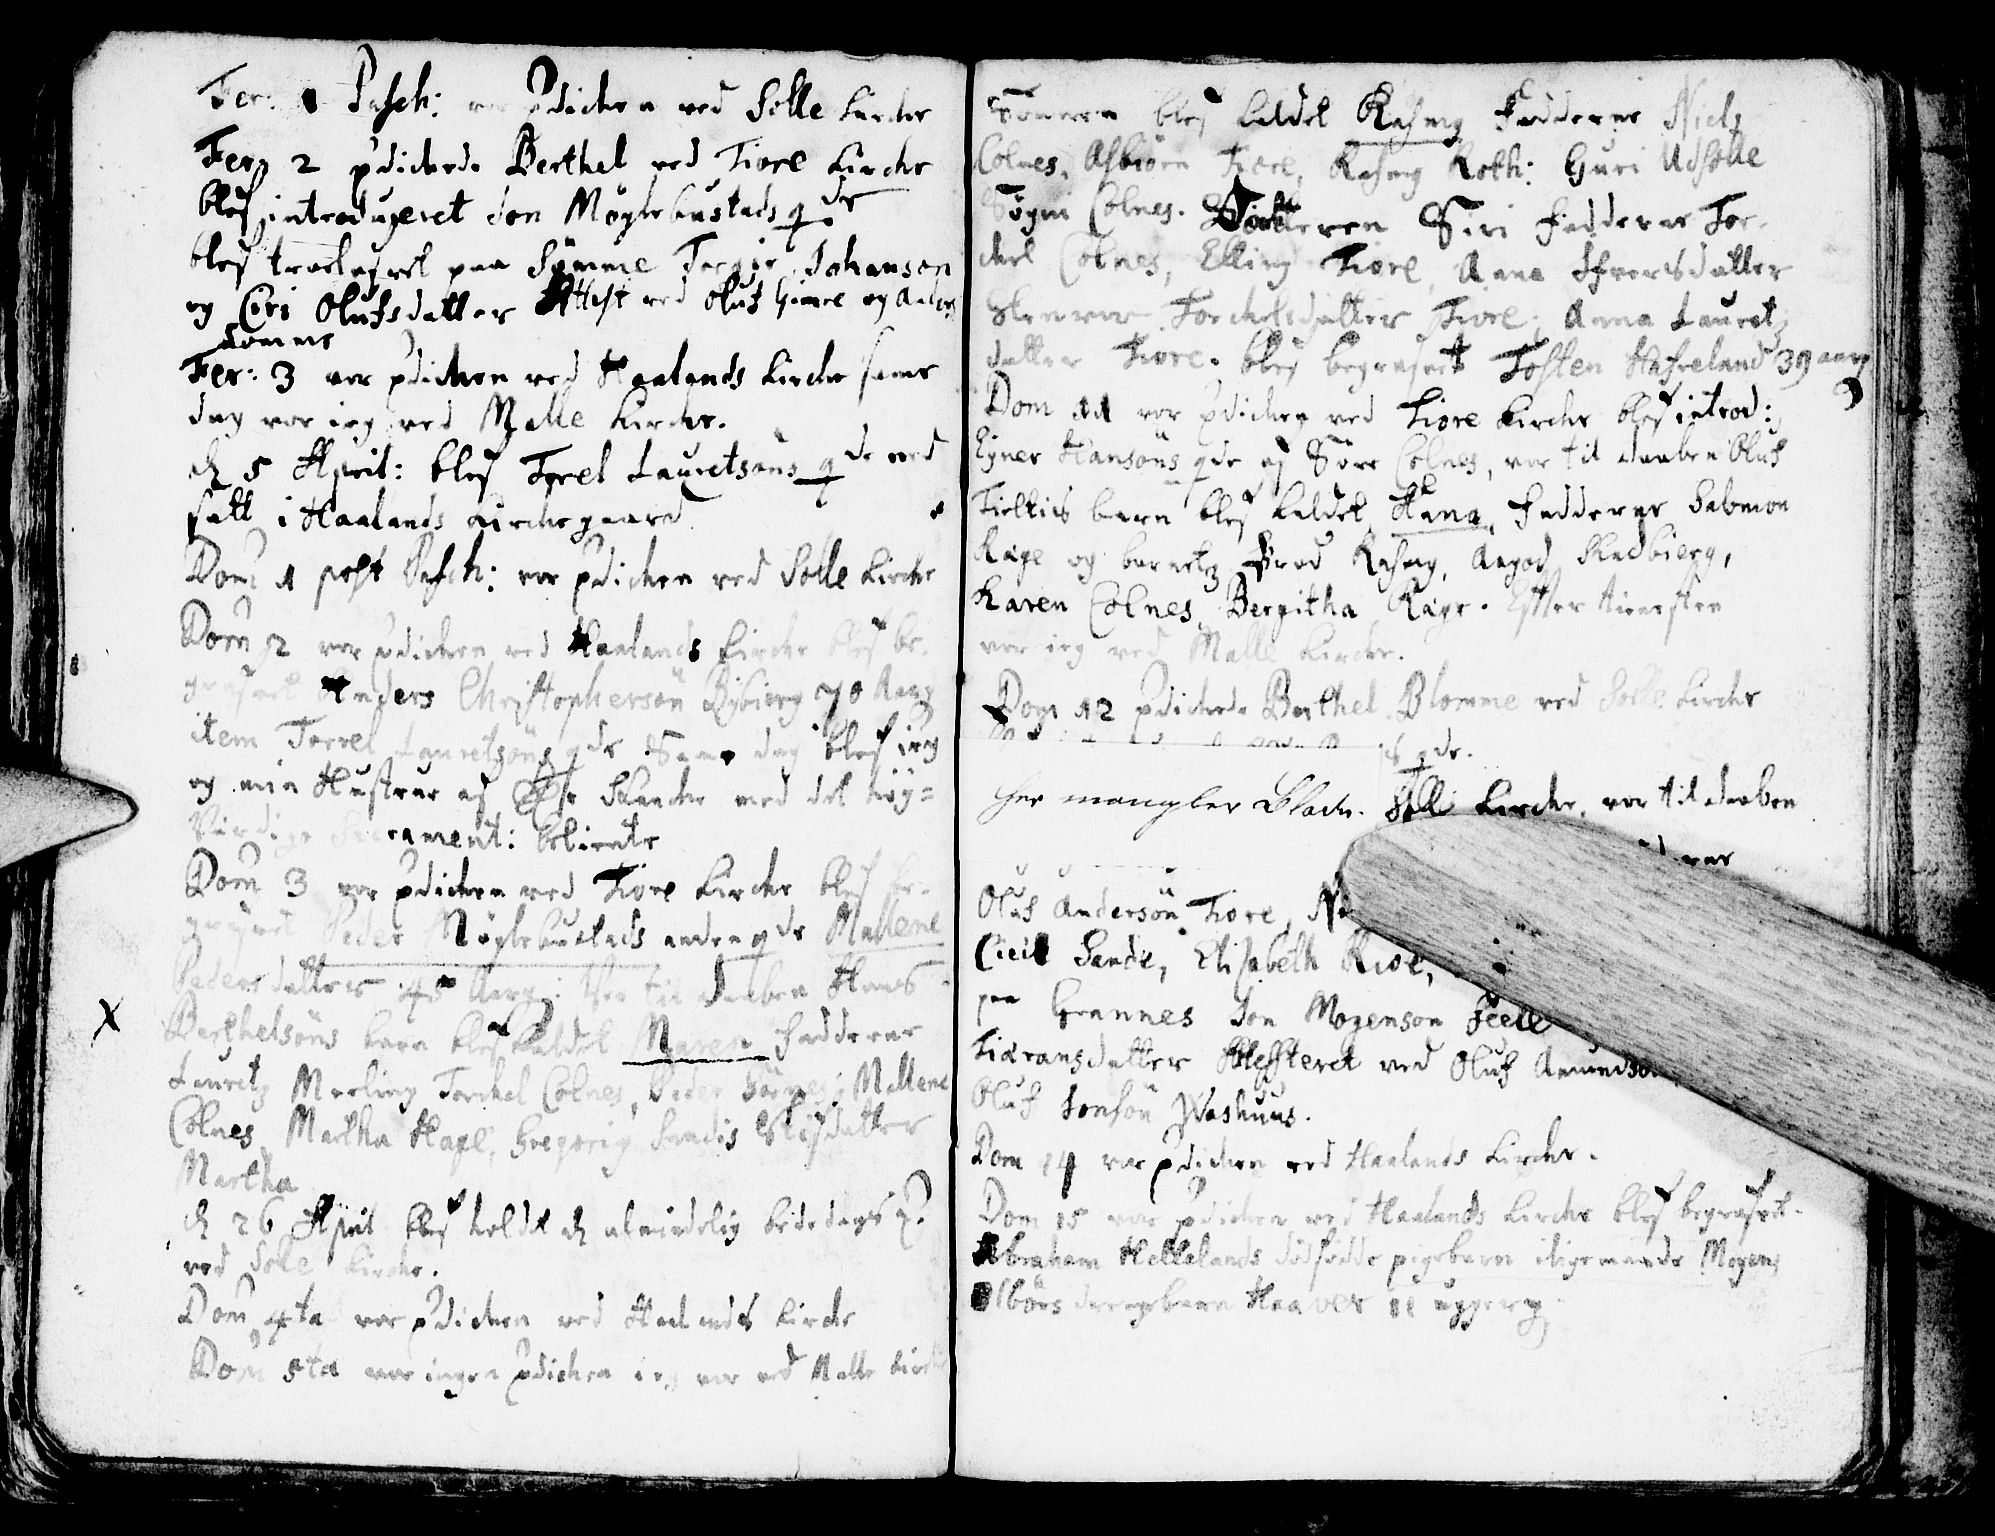 Fer: 1 Pasch: var Pdicken ved Solle Kirche
Fer. 2 pdickede Berthel ved Tiore Kirche
blef introduzeret Jon Møglebustads qde
blef troelofvet paa Sømme Torgir Johanson
og Ciri Olufsdatter Attest ved Oluf Gimre og Anders
Somme
Fer: 3 var pdicken ved Haalands Kirche same
dag var ieg ved Malle Kirche.
d 5 April: blef Torel Lauretsøns qde ned
satt i Haalands Kirchegaard
Dom 1 post Pasch: var pdicken ved Solle Kirche
Dom 2 var pdicken ved Haalands Kirche blef be-
grafvet Anders Christophersøn Bybierg 70 Aarg
item Torrel Lauretsøns qde Same dag blef ieg
og min Hustrue af Hr med det høy-
Virdige Sacrament: beliente
Dom 3 var pdicken ved Tiore Kirche blef be-
grafvet Peder Møglebustads anden qde Mallene
Pedersdatter 45 Aarg: Var til daaben Hans
Berthelsøns barn blef kaldet Maren Fadderne
Lauretz Meeling Torckel Colnes, Peder Sørnes, Mallene
Colnes Martha Hage, Gregorig Sandis datter
Martha
d 26 April blef holdt d almindelig bededags P.
ved Sole Kirche.
Dom 4ta var pdicken ved Haalands Kirche
Dom 5ta var ingen pdicken ieg var ved Malle Kirche
Sønnen blef kaldet Rasmg Fadderne Nielz
Colnes, Asbiørn Tiore, Rasmg Roth: Guri Udsolle
Colnes. Datteren Siri Fadderne Tor-
ckel Colnes, Elling Tiore, Anna Ifversdatter
Torckelsdatter Tiore, Anna Lauretz
datter Tiore. blef begrafvet Tosten Hafreland 39 aarg
Dom 11 var pdicken ved Tiore Kirche blef introd:
Ejner Hansøns qde af Søre Colnes, var til daaben Oluf
barn blef kaldet Hans, Fadderne Salomon
Rage og barnetz Rasmg, Aagod Skadbierg,
Karen Colnes, Bergitha Rage. Efter tienesten
var ieg ved Malle Kirche.
Dom 12 pdickede Berthel Blomme ved Solle Kirche
qde.
Her mangler Blade. Solle Kirche. var til daaben
Oluf Andersøn Tiore,
Cicil Sande, Elisabeth Rioe,
paa Grannes Jon Mogenson
datter Attesteret ved Oluf Amundsøn
Oluf Jonsøn Washuus.
Dom 14 var pdicken ved Haalands Kirche.
Dom 15 var pdicken ved Haalands Kirche blef begrafvet.
Abraham Hellelands dødfødde pigebarn iligemaade Mogens
drengebarn Haaver 11 uggerg